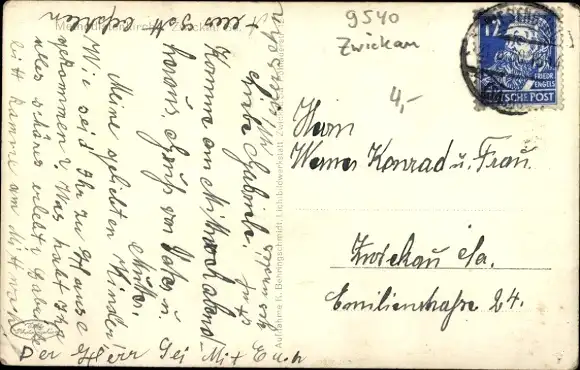 9540
Zwickau
4,-
12
FRIEDR.
ENGELS
DEUTSCHE POST
Herrn
Werner Konrad u. Frau.
Zwickau i/Sa.
Emilienstraße 24.
Meine geliebten Kinder!
Wie seid Ihr zu Hause
gekommen? Was habt Ihr
alles schönes erlebt? Gabriele
bitte komme am Mittwoch
Der Herr Sei Mit Euch
Liebe Gabriele,
Komme am Mittwoch abend
heraus, Gruß von Vater u
Mutter.
Aufnahme K. Beringschmidt, Lichtbildwerkstatt Zwickau